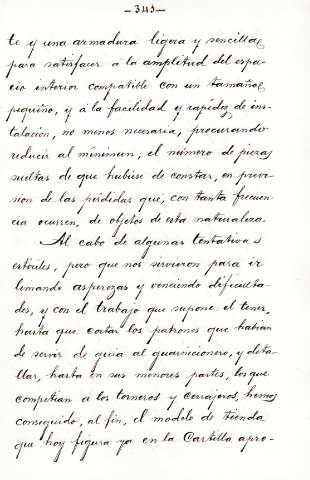 -343-
te y una armadura ligera y sencilla
para satisfacer á la amplitud del espa-
cio interior compatible con un tamaño
pequeño, y á la facilidad y rapidez de ins-
talación, no menos necesaria, procurando
reducir al mínimun, el número de piezas
sueltas de que hubiese de constar, en previ-
sión de las pérdidas que, con tanta frecuen-
cia ocurren, de objetos de esta naturaleza.
Al cabo de algunas tentativas
estériles, pero que nos sirvieron para ir
limando asperezas y venciendo dificulta-
des, y con el trabajo que supone el tener,
hasta que cortar los patrones que habian
de servir de guia al guarnicionero, y deta-
llar, hasta en sus menores partes, los que
competian á los torneros y cerrajeros, hemos
conseguido, al fin, el modelo de tienda
que hoy figura ya en la Cartilla apro-